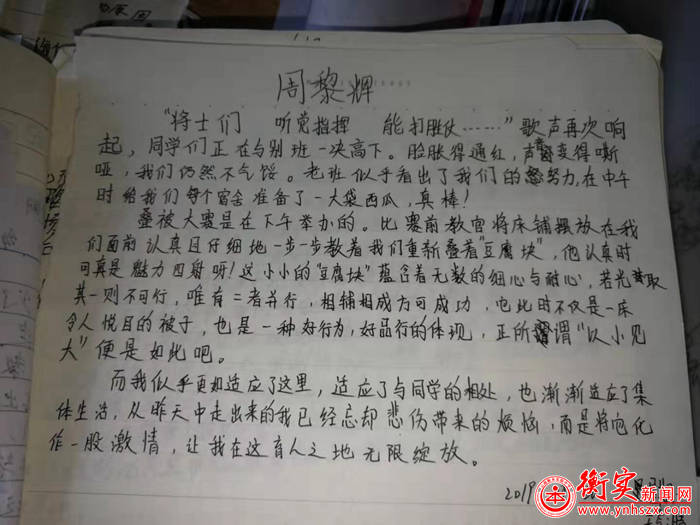 周黎辉
"将士们 听党指挥 能打胜仗……"歌声再次响
起,同学们正在与别班一决高下。脸胀得通红,声音变得嘶
哑,我们仍然不气馁。老班似乎看出了我们的努力,在中午
时给我们每个宿舍准备了一大袋西瓜,真棒!
叠被大赛是在下午举办的。比赛前教官将床铺摆放在我
们面前认真且仔细地一步一步教着我们重新叠着"豆腐块",他认真时
可真是魅力四射呀!这小小的"豆腐块"蕴含着无数的细心与耐心,若光取
其一则不可行,唯有二者并行,相辅相成方可成功,它此时不仅是一床
令人悦目的被子,也是一种好行为,好品行的体现,正所谓"以小见
大"便是如此吧。
而我似乎更加适应了这里,适应了与同学的相处,也渐渐适应了集
体生活,从昨天中走出来的我已经忘却悲伤带来的烦恼,而是将它化
作一股激情,让我在这育人之地无限绽放。
2019
衡实新闻网
www.ynhszx.com